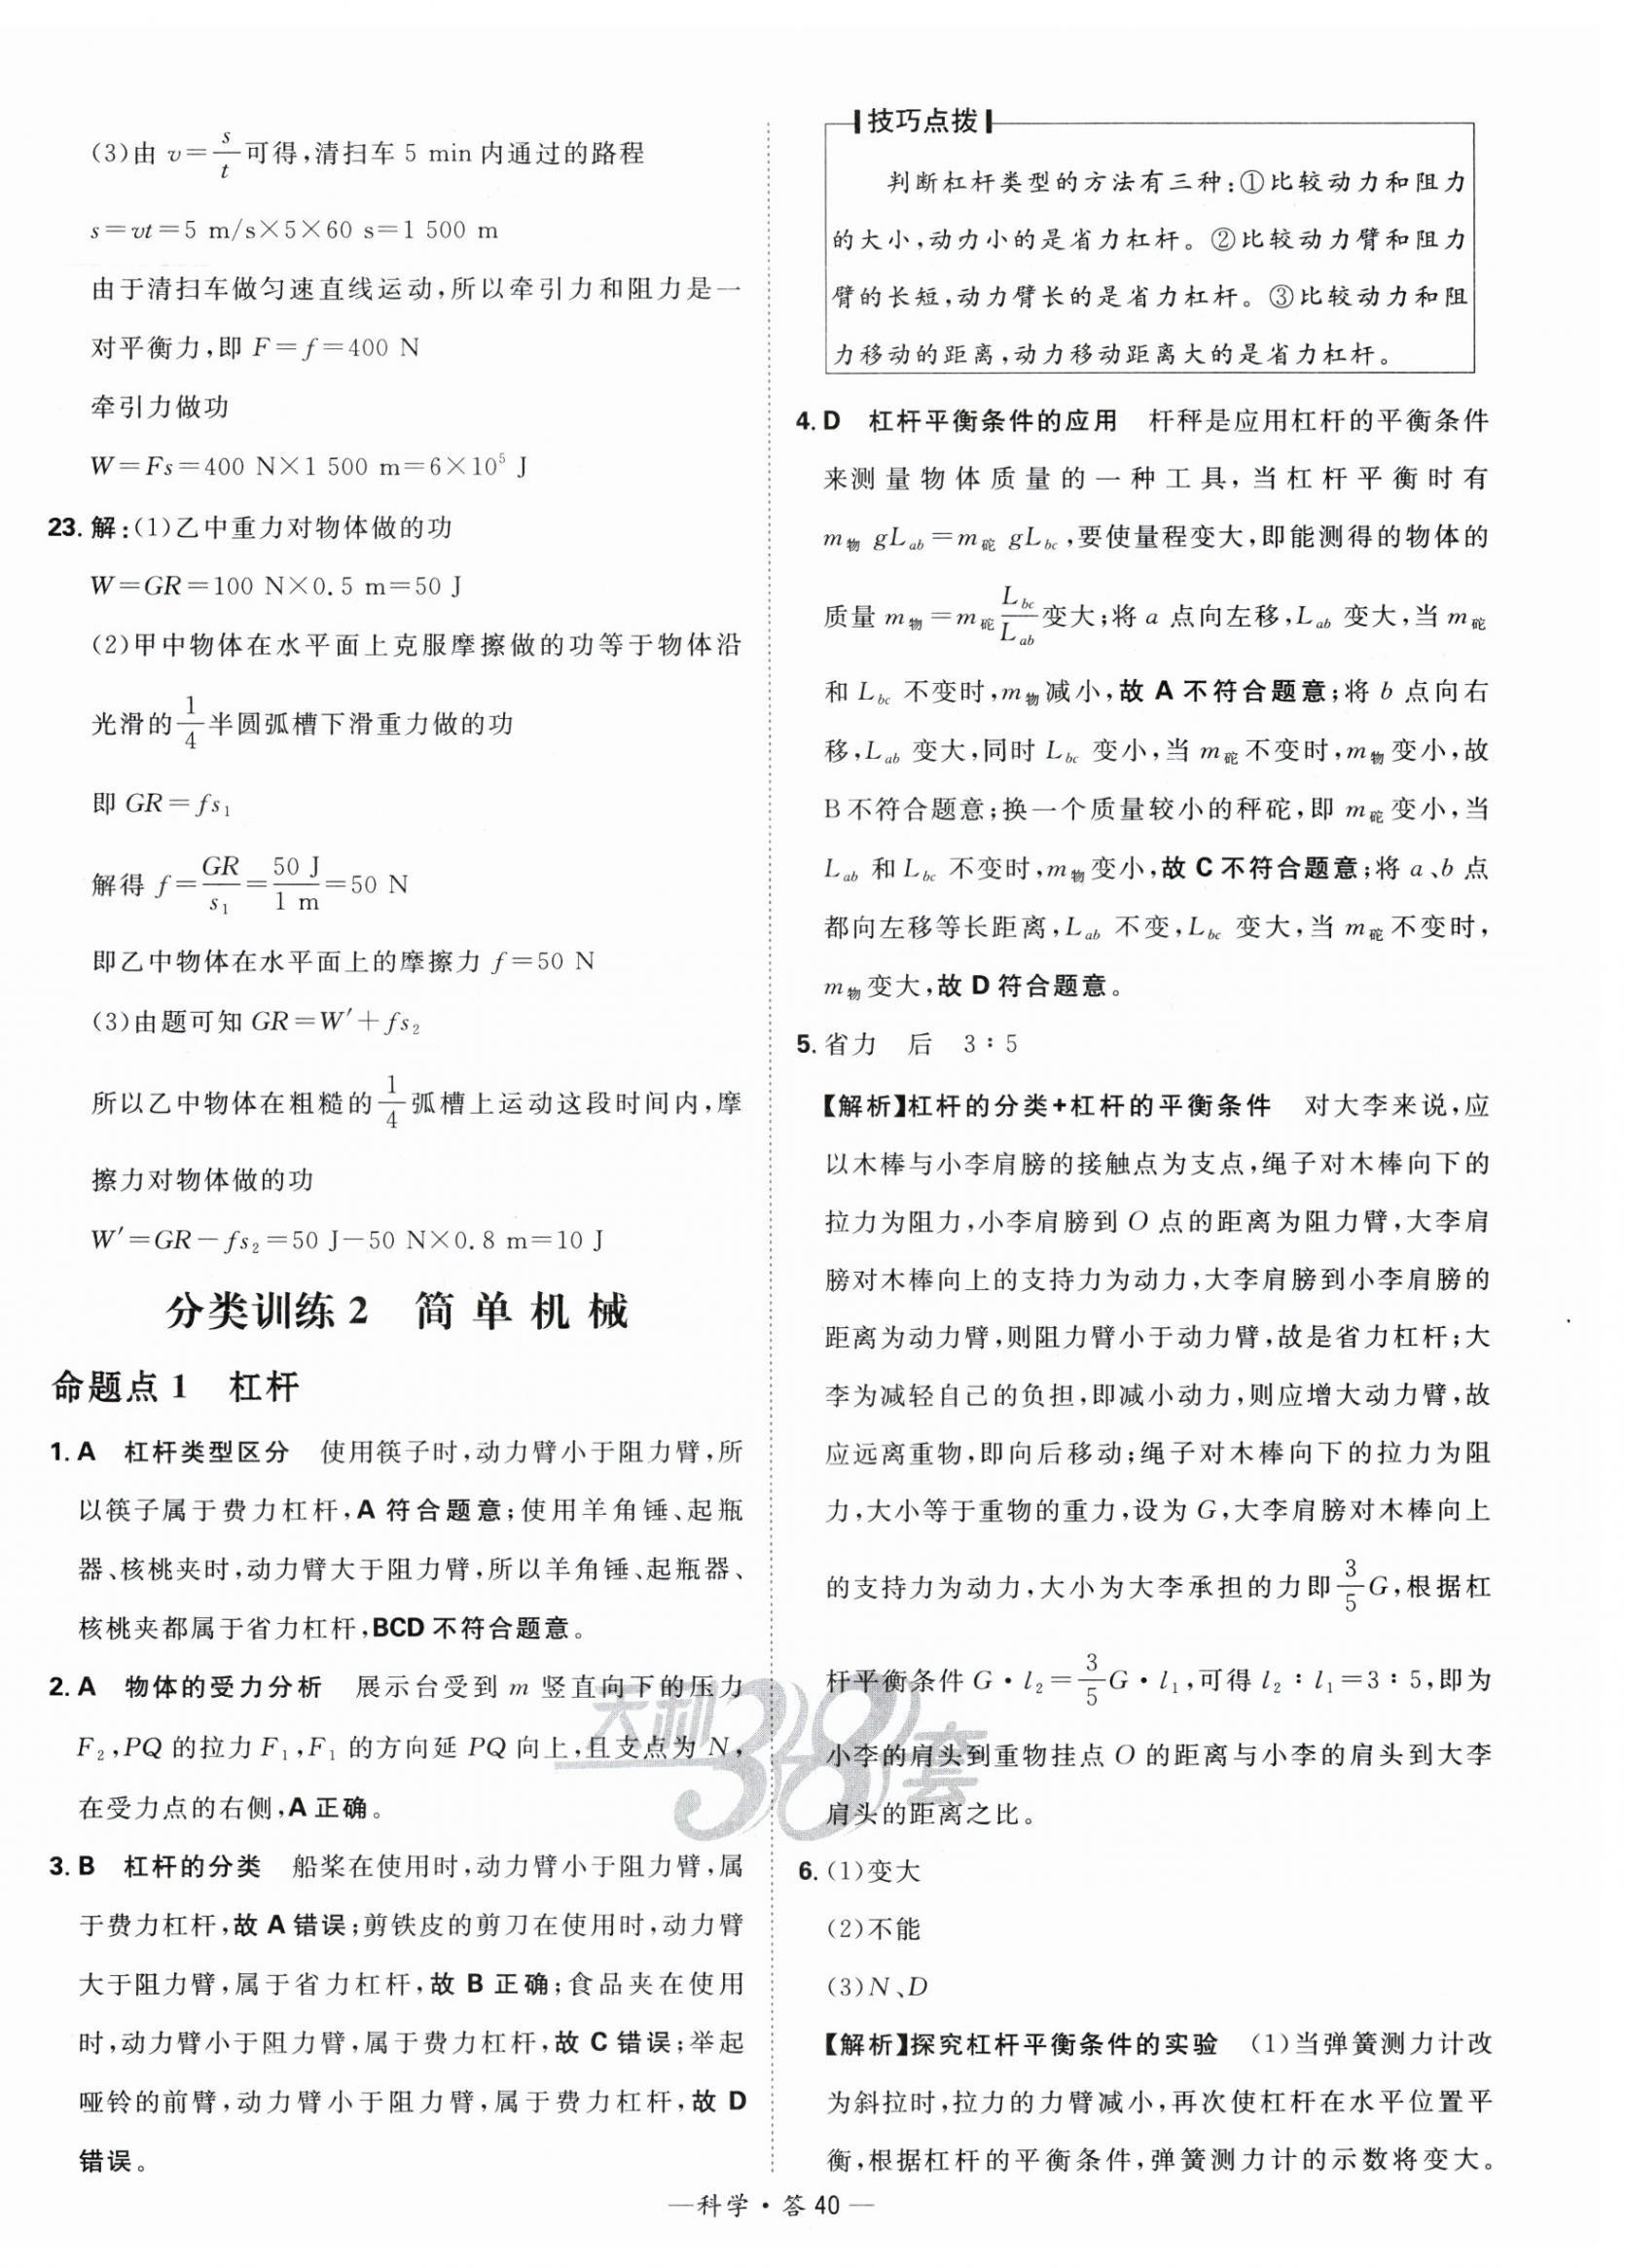 (3)由 v=s/t可得,清扫车 5 min 内通过的路程
s=vt=5 m/s×5×60 s=1 500 m
由于清扫车做匀速直线运动,所以牵引力和阻力是一
对平衡力,即 F=f=400 N
牵引力做功
W=Fs=400 N×1 500 m=6×10⁵ J
23. 解:(1)乙中重力对物体做的功
W=GR=100 N×0.5 m=50 J
(2)甲中物体在水平面上克服摩擦做的功等于物体沿
光滑的1/4半圆弧槽下滑重力做的功
即 GR=fs₁
解得 f=GR/s₁=50 J/1 m=50 N
即乙中物体在水平面上的摩擦力 f=50 N
(3)由题可知 GR=W′+fs₂
所以乙中物体在粗糙的1/4弧槽上运动这段时间内,摩
擦力对物体做的功
W′=GR-fs₂=50 J-50 N×0.8 m=10 J
分类训练2 简单机械
命题点1 杠杆
1. A 杠杆类型区分 使用筷子时,动力臂小于阻力臂,所
以筷子属于费力杠杆,A 符合题意;使用羊角锤、起瓶
器、核桃夹时,动力臂大于阻力臂,所以羊角锤、起瓶器、
核桃夹都属于省力杠杆,BCD 不符合题意。
2. A 物体的受力分析 展示台受到 m 竖直向下的压力
F₂,PQ 的拉力 F₁,F₁ 的方向延 PQ 向上,且支点为 N,
在受力点的右侧,A 正确。
3. B 杠杆的分类 船桨在使用时,动力臂小于阻力臂,属
于费力杠杆,故 A 错误;剪铁皮的剪刀在使用时,动力臂
大于阻力臂,属于省力杠杆,故 B 正确;食品夹在使用
时,动力臂小于阻力臂,属于费力杠杆,故 C 错误;举起
哑铃的前臂,动力臂小于阻力臂,属于费力杠杆,故 D
错误。
技巧点拨
判断杠杆类型的方法有三种:①比较动力和阻力
的大小,动力小的是省力杠杆。②比较动力臂和阻力
臂的长短,动力臂长的是省力杠杆。③比较动力和阻
力移动的距离,动力移动距离大的是省力杠杆。
4. D 杠杆平衡条件的应用 杆秤是应用杠杆的平衡条件
来测量物体质量的一种工具,当杠杆平衡时有
m物 gLab=m砣 gLbc,要使量程变大,即能测得的物体的
质量 m物=m砣 Lbc/Lab变大;将 a 点向左移,Lab 变大,当 m砣
和 Lbc 不变时,m物减小,故 A 不符合题意;将 b 点向右
移,Lab 变大,同时 Lbc 变小,当 m砣不变时,m物变小,故
B不符合题意;换一个质量较小的秤砣,即 m砣变小,当
Lab 和 Lbc 不变时,m物变小,故 C 不符合题意;将 a、b 点
都向左移等长距离,Lab 不变,Lbc 变大,当 m砣不变时,
m物变大,故 D 符合题意。
5. 省力 后 3∶5
【解析】杠杆的分类+杠杆的平衡条件 对大李来说,应
以木棒与小李肩膀的接触点为支点,绳子对木棒向下的
拉力为阻力,小李肩膀到 O 点的距离为阻力臂,大李肩
膀对木棒向上的支持力为动力,大李肩膀到小李肩膀的
距离为动力臂,则阻力臂小于动力臂,故是省力杠杆;大
李为减轻自己的负担,即减小动力,则应增大动力臂,故
应远离重物,即向后移动;绳子对木棒向下的拉力为阻
力,大小等于重物的重力,设为 G,大李肩膀对木棒向上
的支持力为动力,大小为大李承担的力即3/5G,根据杠
杆平衡条件 G·l₂=3/5G·l₁,可得 l₂∶l₁=3∶5,即为
小李的肩头到重物挂点 O 的距离与小李的肩头到大李
肩头的距离之比。
6. (1)变大
(2)不能
(3)N、D
【解析】探究杠杆平衡条件的实验 (1)当弹簧测力计改
为斜拉时,拉力的力臂减小,再次使杠杆在水平位置平
衡,根据杠杆的平衡条件,弹簧测力计的示数将变大。
天利38套
—科学·答 40—